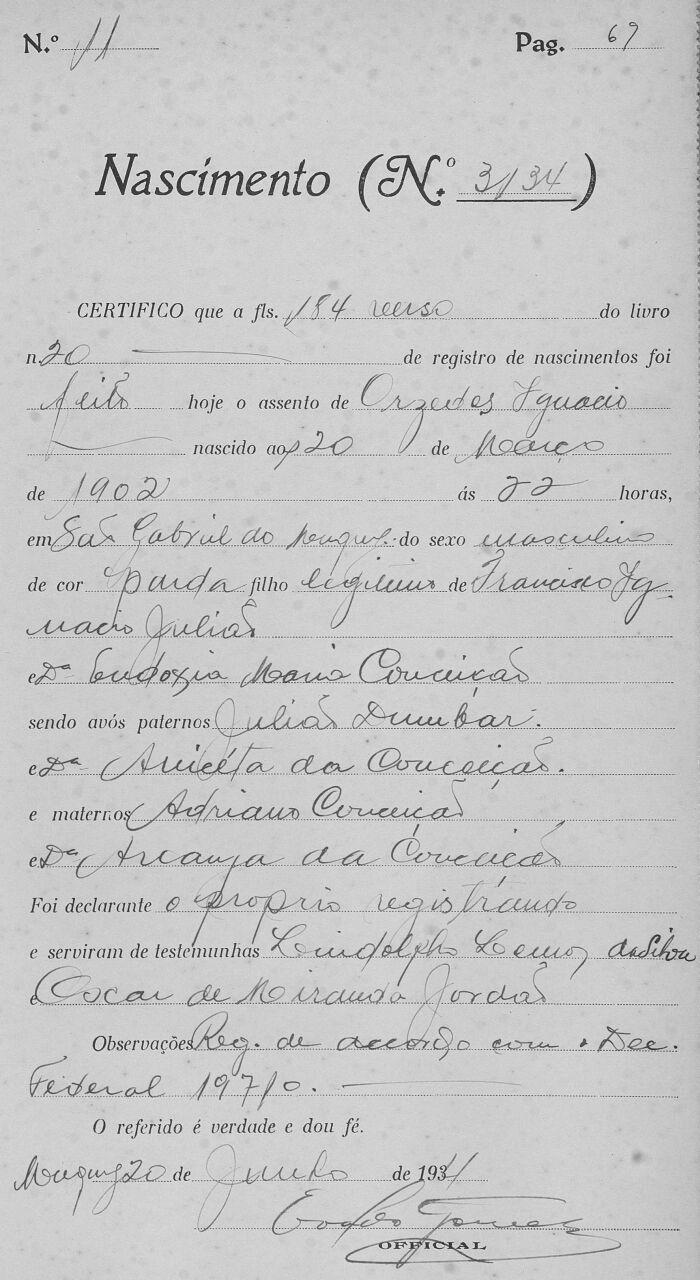 N.º 11 Pag. 69
Nascimento (N.º 3134)
CERTIFICO que a fls. 184 verso do livro
n. 20 de registro de nascimentos foi
feito hoje o assento de Orzedes Ignacio
nascido aos 20 de Março
de 1902 ás 22 horas,
em São Gabriel do Muquy. do sexo masculino
de cor parda filho legitimo de Francisco Ig-
nacio Julião
e Dª Eudoxia Maria Conceição
sendo avós paternos Julião Dumbar.
e Dª Aniceta da Conceição.
e maternos Adriano Conceição
e Dª Arcanja da Conceição
Foi declarante o proprio registrando
e serviram de testemunhas Lindolpho Lemos da Silva
e Oscar de Miranda Jordão
Observações Reg. de accordo com o Dec.
Federal 19710.
O referido é verdade e dou fé.
Muquy 20 de Junho de 1931
Gomes
OFFICIAL